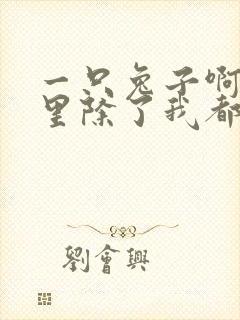 一只兔子啊
里除了我都
劉會興